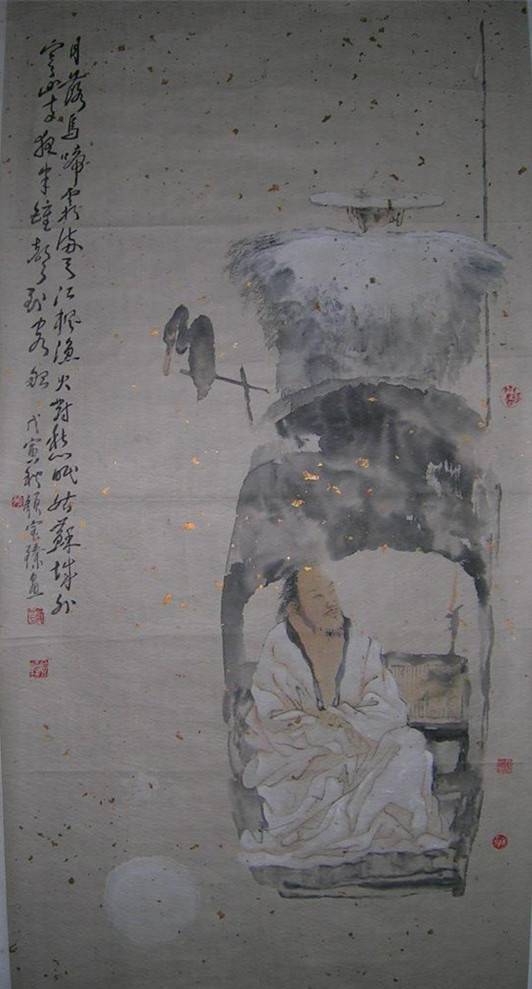 月落烏啼霜满天江楓漁火對愁眠姑蘇城外
寒山寺夜半鐘聲到客船 戊寅秋顏宝臻画